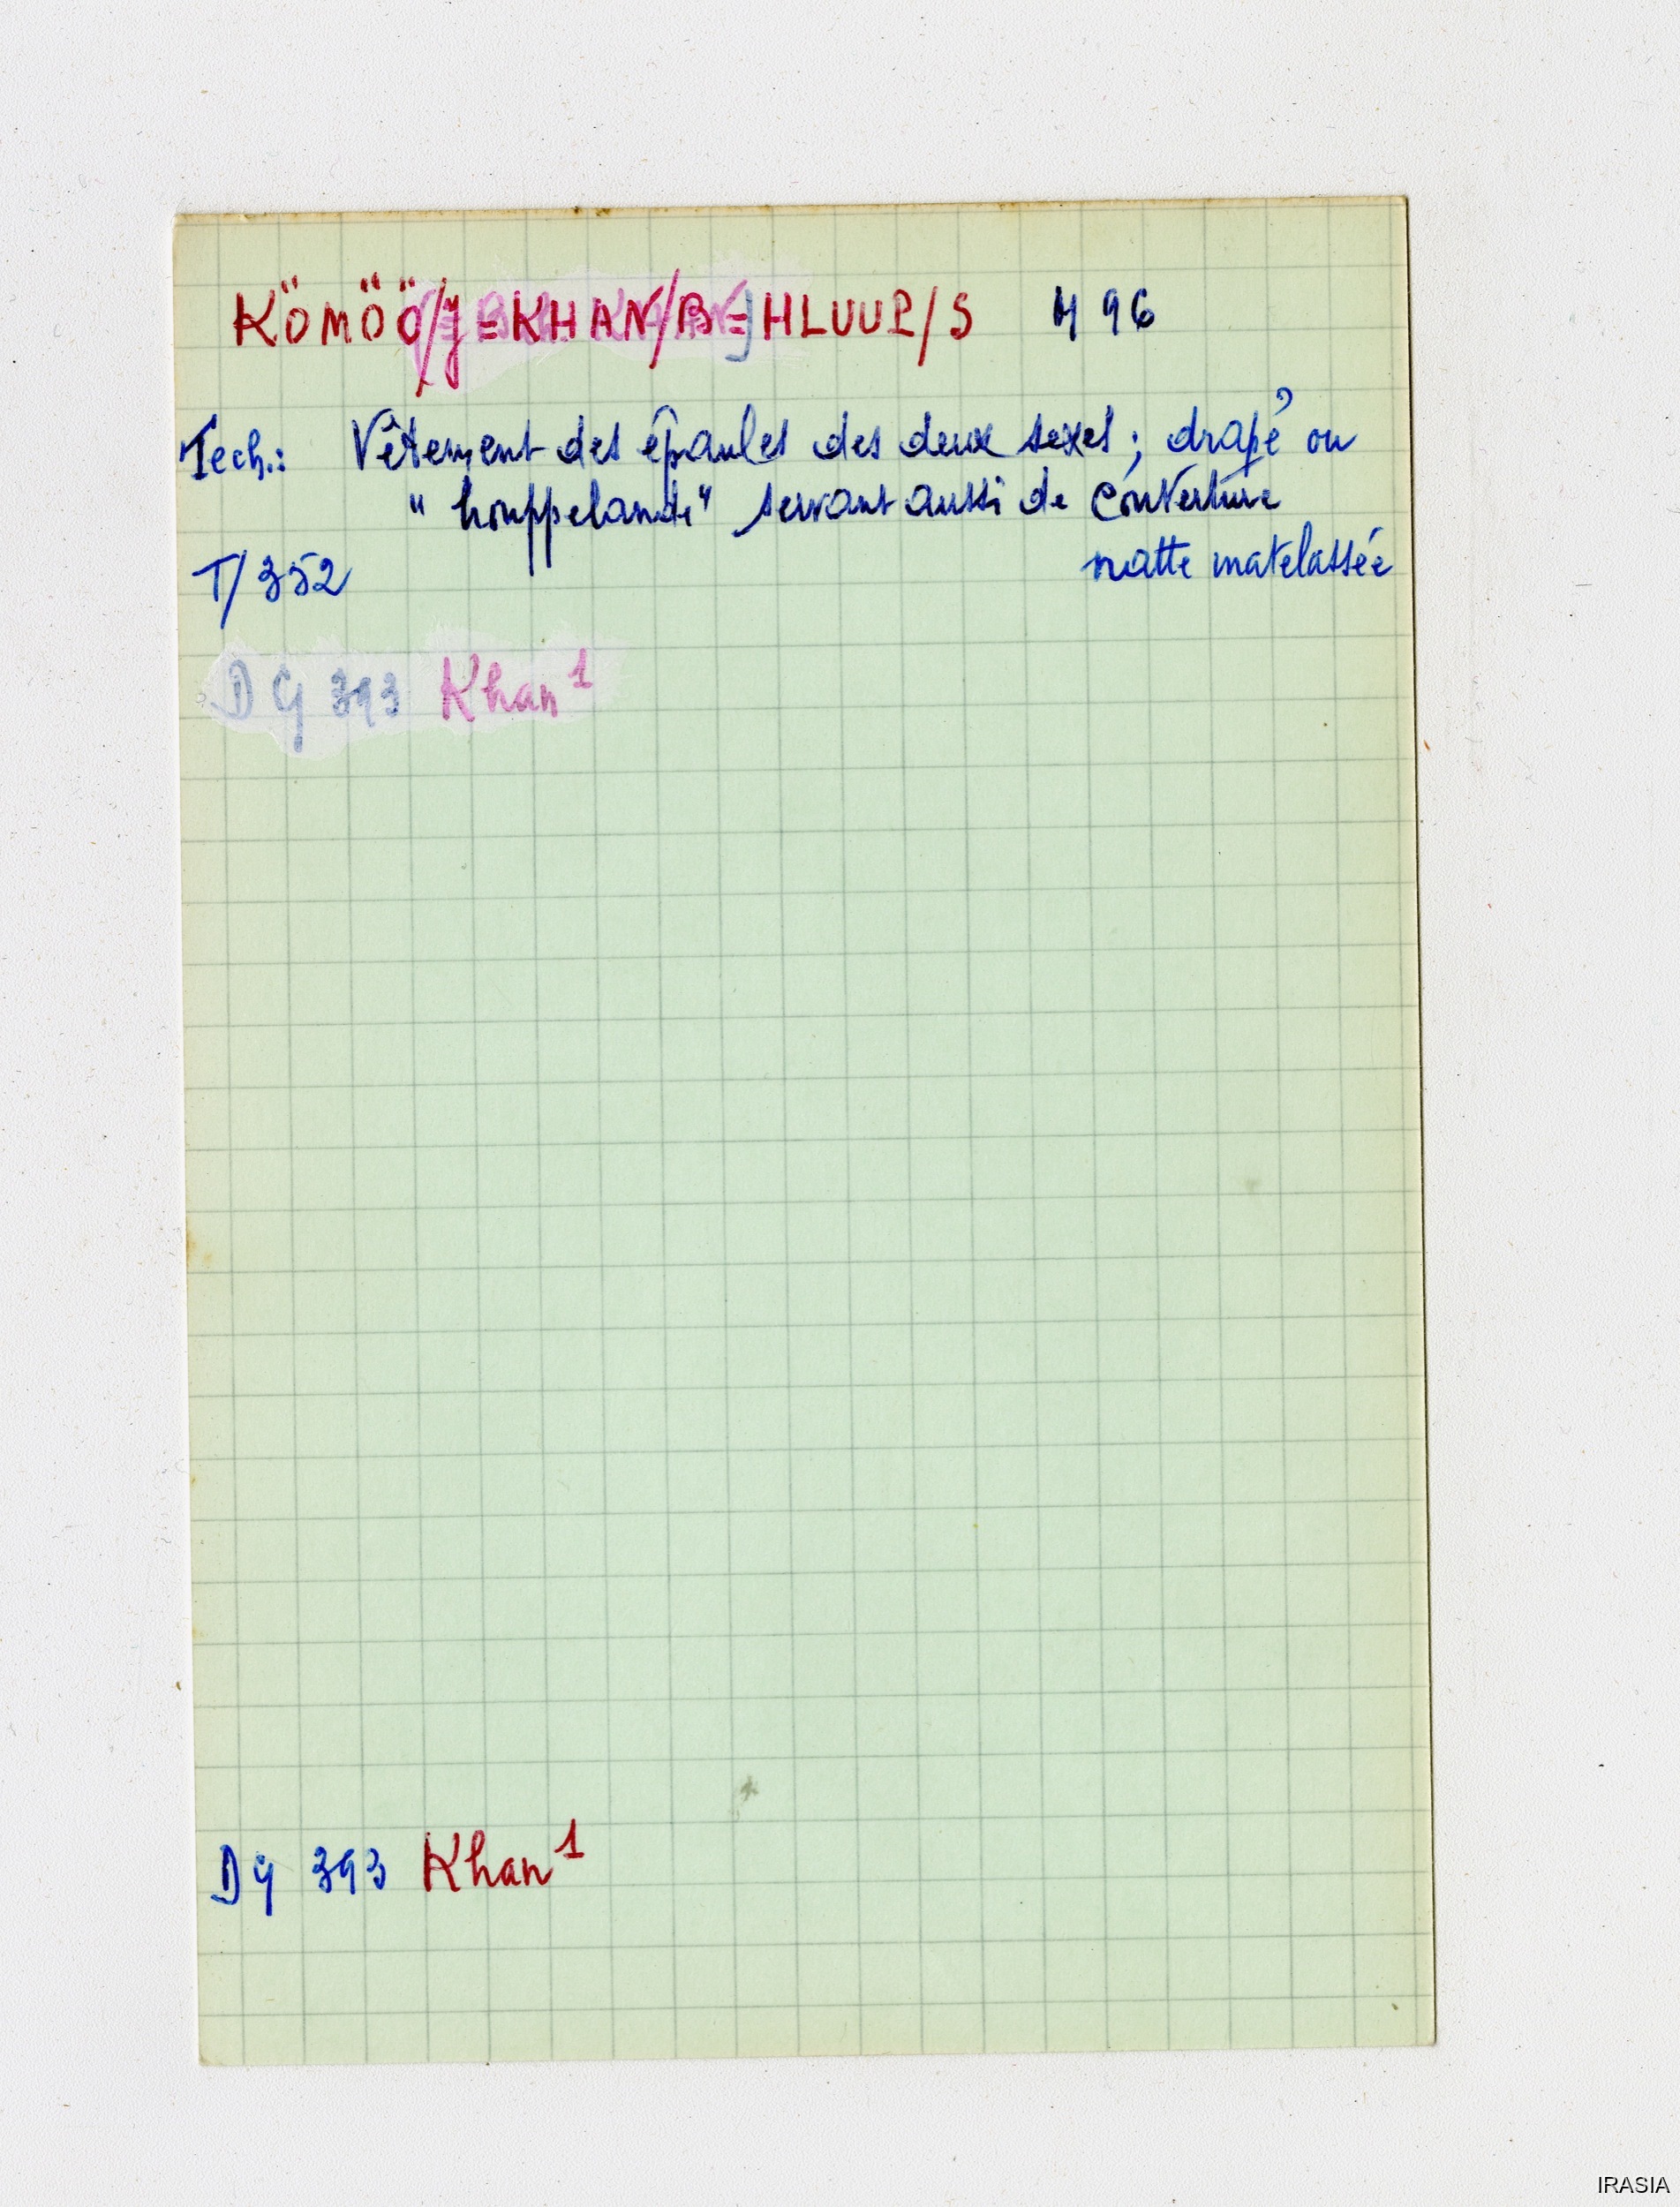 KÖMÖÖ/J=KHAN/B=HLUUP/S M 96
Tech.: Vêtement des épaules des deux sexes ; drapé ou
"houppelande" servant aussi de couverture
natte matelassée
T/352
DG 393 Khan¹
DG 393 Khan¹
IRASIA